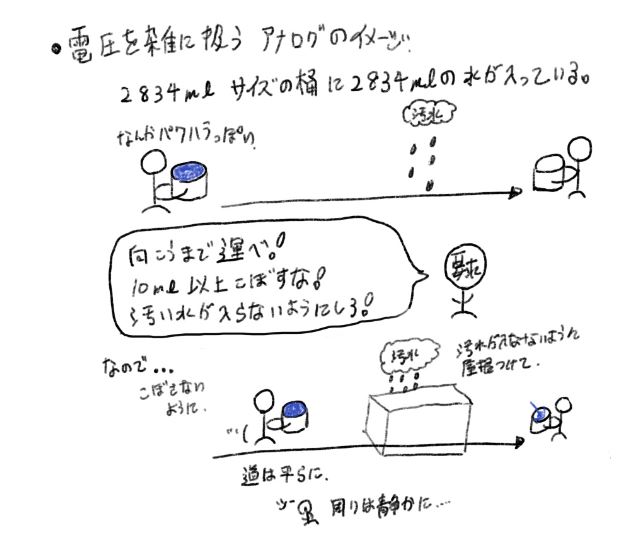 ・電圧を雑に扱う アナログのイメージ
2834ml サイズの桶に2834mlの水が入っている。
なんかパワハラっぽい
汚水
向こうまで運べ!
10ml以上こぼすな!
汚い水が入らないようにしろ!
要求
なので...
こぼさない
ように.
汚水
汚水が入らないように
屋根つけて.
道は平らに.
周りは静かに...